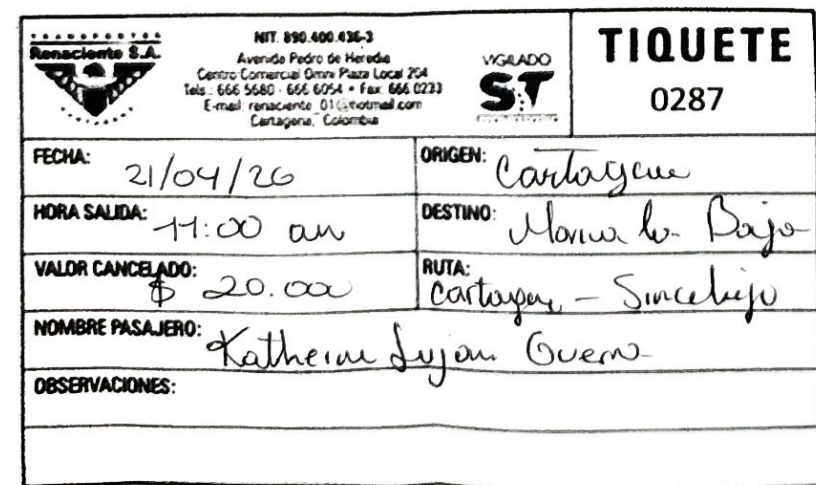 Renaciente S.A.
NIT. 890.400.436-3
Avenida Pedro de Heredia
Centro Comercial Omni Plaza Local 204
Tels.: 666 5680 - 666 6054 • Fax: 666 0233
E-mail: renaciente_01@hotmail.com
Cartagena, Colombia
VIGILADO
ST
TIQUETE
0287
FECHA: 21/04/26
ORIGEN: Cartagena
HORA SALIDA: 11:00 am
DESTINO: Maria la Baja
VALOR CANCELADO: $ 20.000
RUTA: Cartagena - Sincelejo
NOMBRE PASAJERO: Katherine Lujan Guerra
OBSERVACIONES: